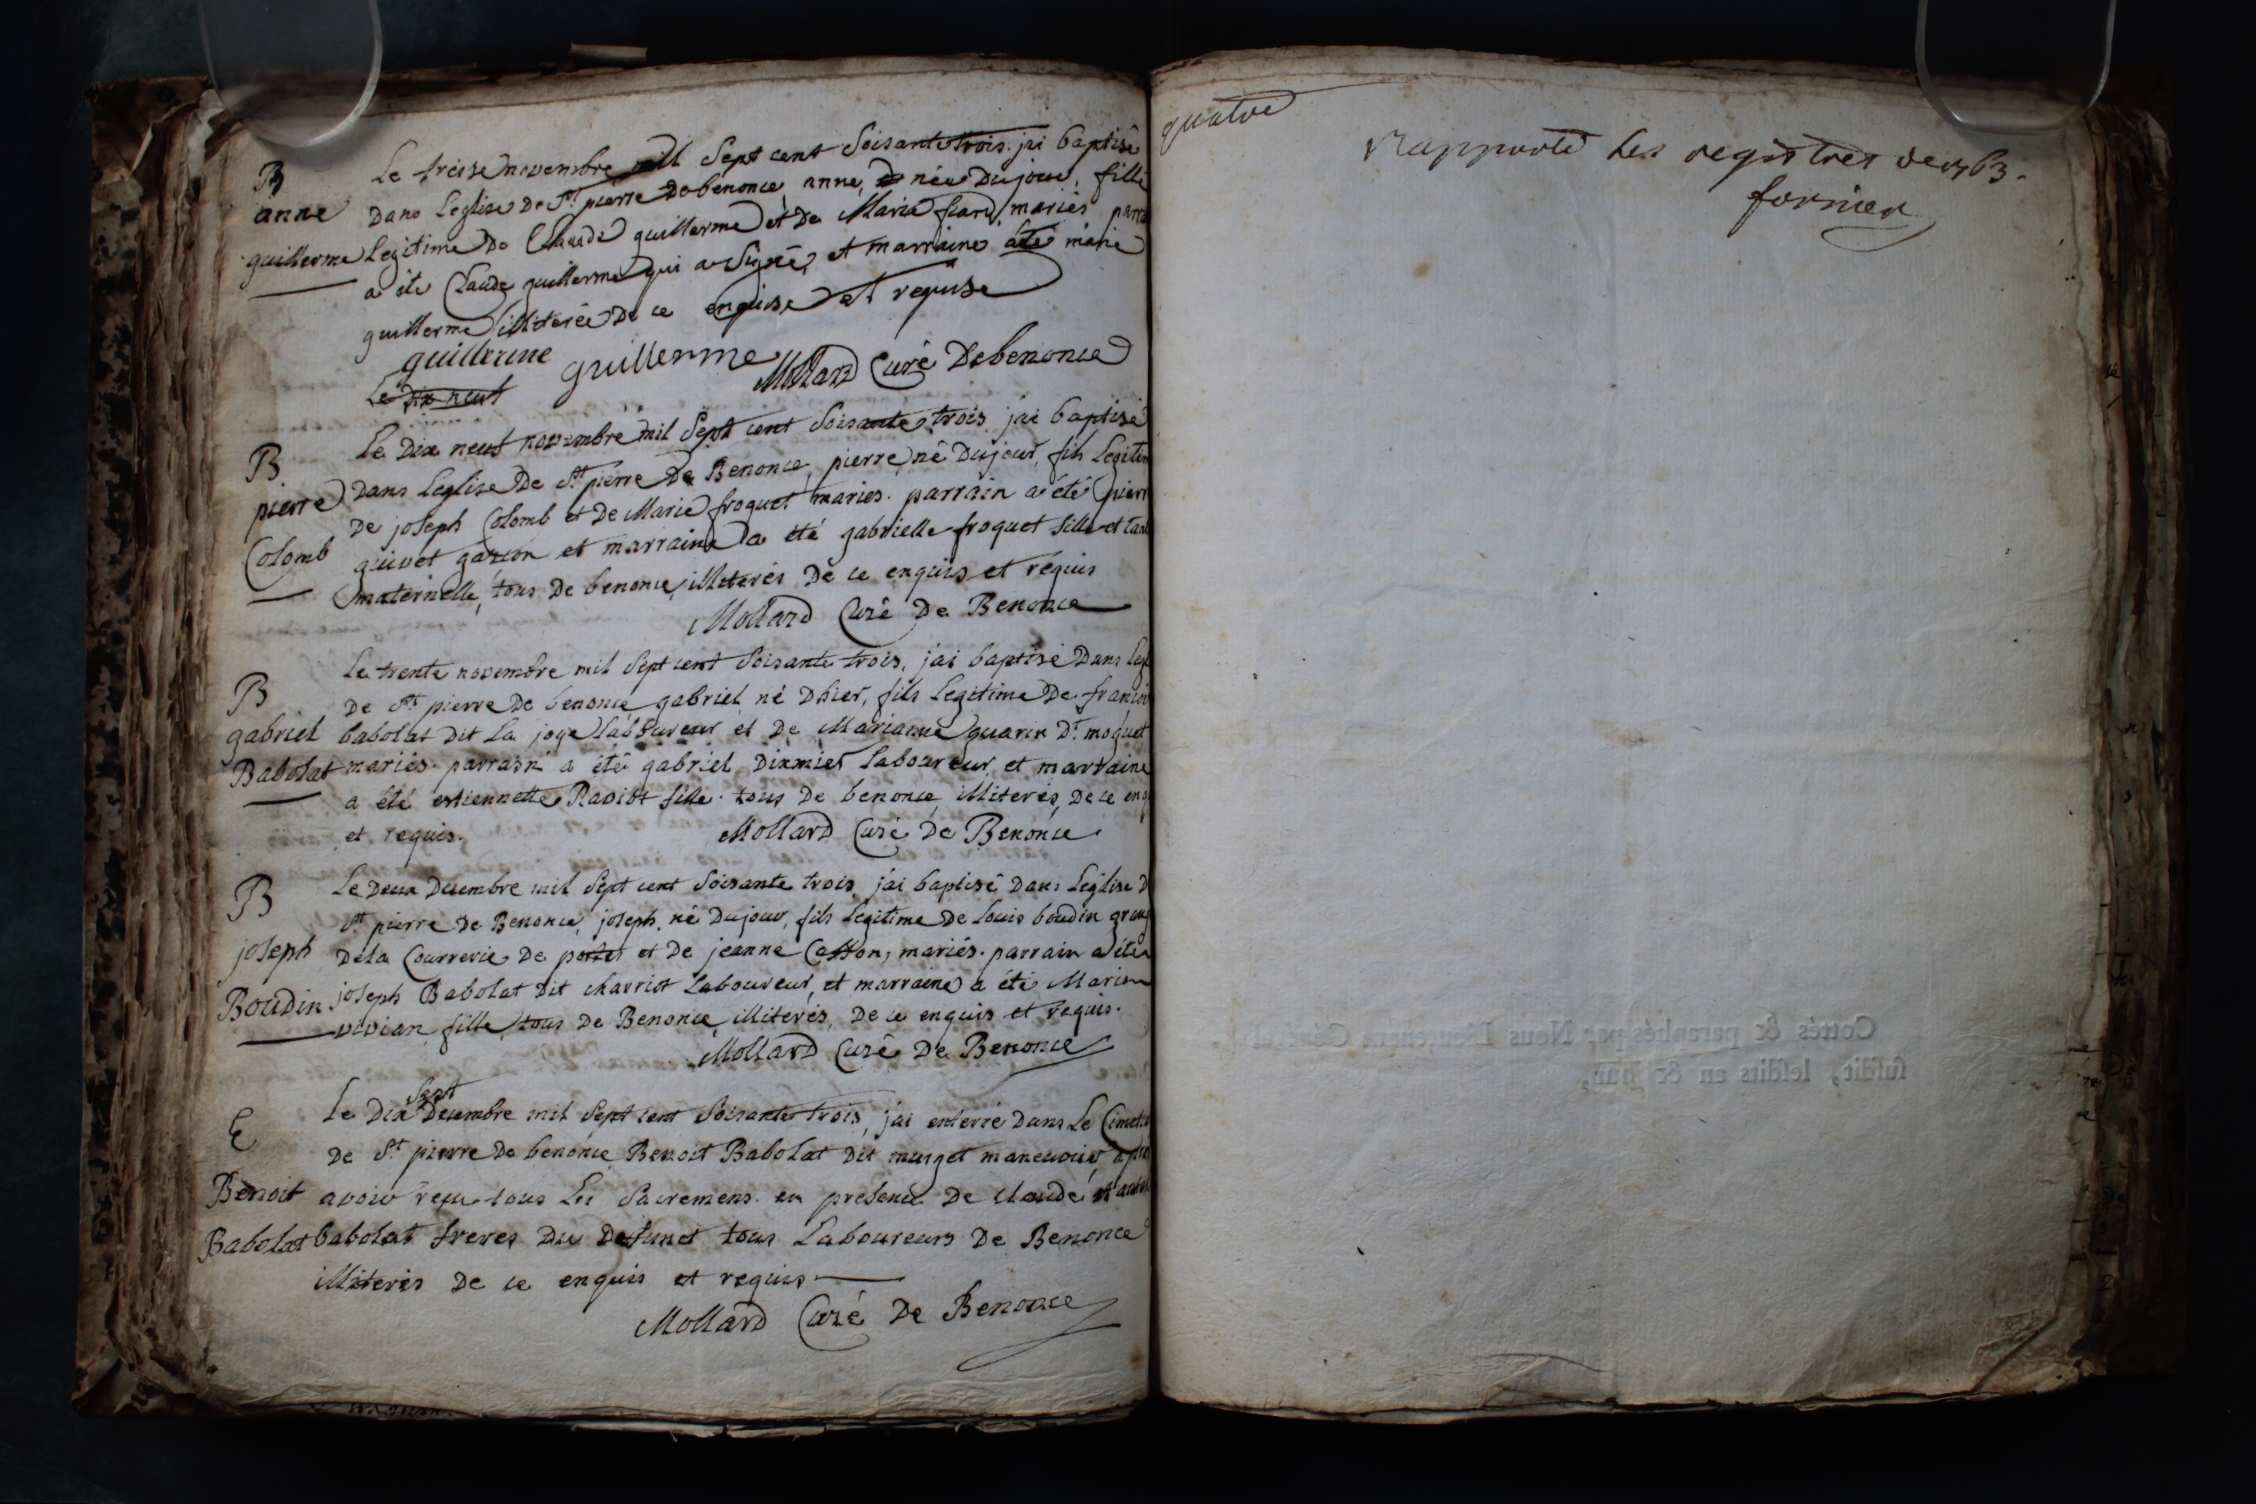 B
anne
guillerme
Le treise novembre mil Sept cent Soisante trois. jai baptisé
Dans Leglise De St. pierre De benonce, anne, née Dujour, fille
Legitime De Claude guillerme et De Marie mariés
a été Claude guillerme qui a Signé, et marraine a été marie
guillerme illiterée De ce enquise et requise
guillerme guillerme Mollard Curé De benonce
Le Dix neuf
B
pierre
Colomb
Le Dix neuf novembre mil Sept cent Soisante trois jai baptisé
Dans Leglise De St. pierre De Benonce, pierre né Dujour, fils
De joseph Colomb et De Marie froquet mariés. parrain a été
guivet garson et marraine a été gabrielle froquet fille et
maternelle, tous De benonce illiterés De ce enquis et requis
Mollard Curé De Benonce
B
gabriel
Babolat
Le trente novembre mil Sept cent Soisante trois, jai baptisé Dans
De St. pierre De benonce gabriel né Dhier, fils Legitime De
babolat Dit La joye Laboureur et De Marianne quarin Dt. moquet
mariés. parrain a été gabriel Dixmier Laboureur, et marraine
a été estiennette Raviot fille. tous De benonce illiterés, De ce
et requis. Mollard Curé De Benonce
B
joseph
Boudin
Le Deux Decembre mil Sept cent Soisante trois jai baptisé Dans Leglise
St. pierre De Benonce, joseph, né Dujour, fils Legitime De Louis boudin
Dela Courrerie De portes et De jeanne Caston, mariés. parrain a été
joseph Babolat Dit charriot Laboureur, et marraine a été
vivian fille tous De Benonce, illiterés, De ce enquis et requis.
Mollard Curé De Benonce
E
Benoit
Babolat
Sept
Le Dix Decembre mil Sept cent Soisante trois, jai enterré Dans Le
De St. pierre De benonce Benoit Babolat Dit murget
avoir reçu tous Les Sacremens en presence De Claude et
babolat freres Du Defunct tous Laboureurs De Benonce
illiterés De ce enquis et requis
Mollard Curé De Benonce
quatre
Rapporté Les registres de 1763.
fornier
Cottés & paraphés par Nous Lieutenant
susdit, lesdits an & jour,